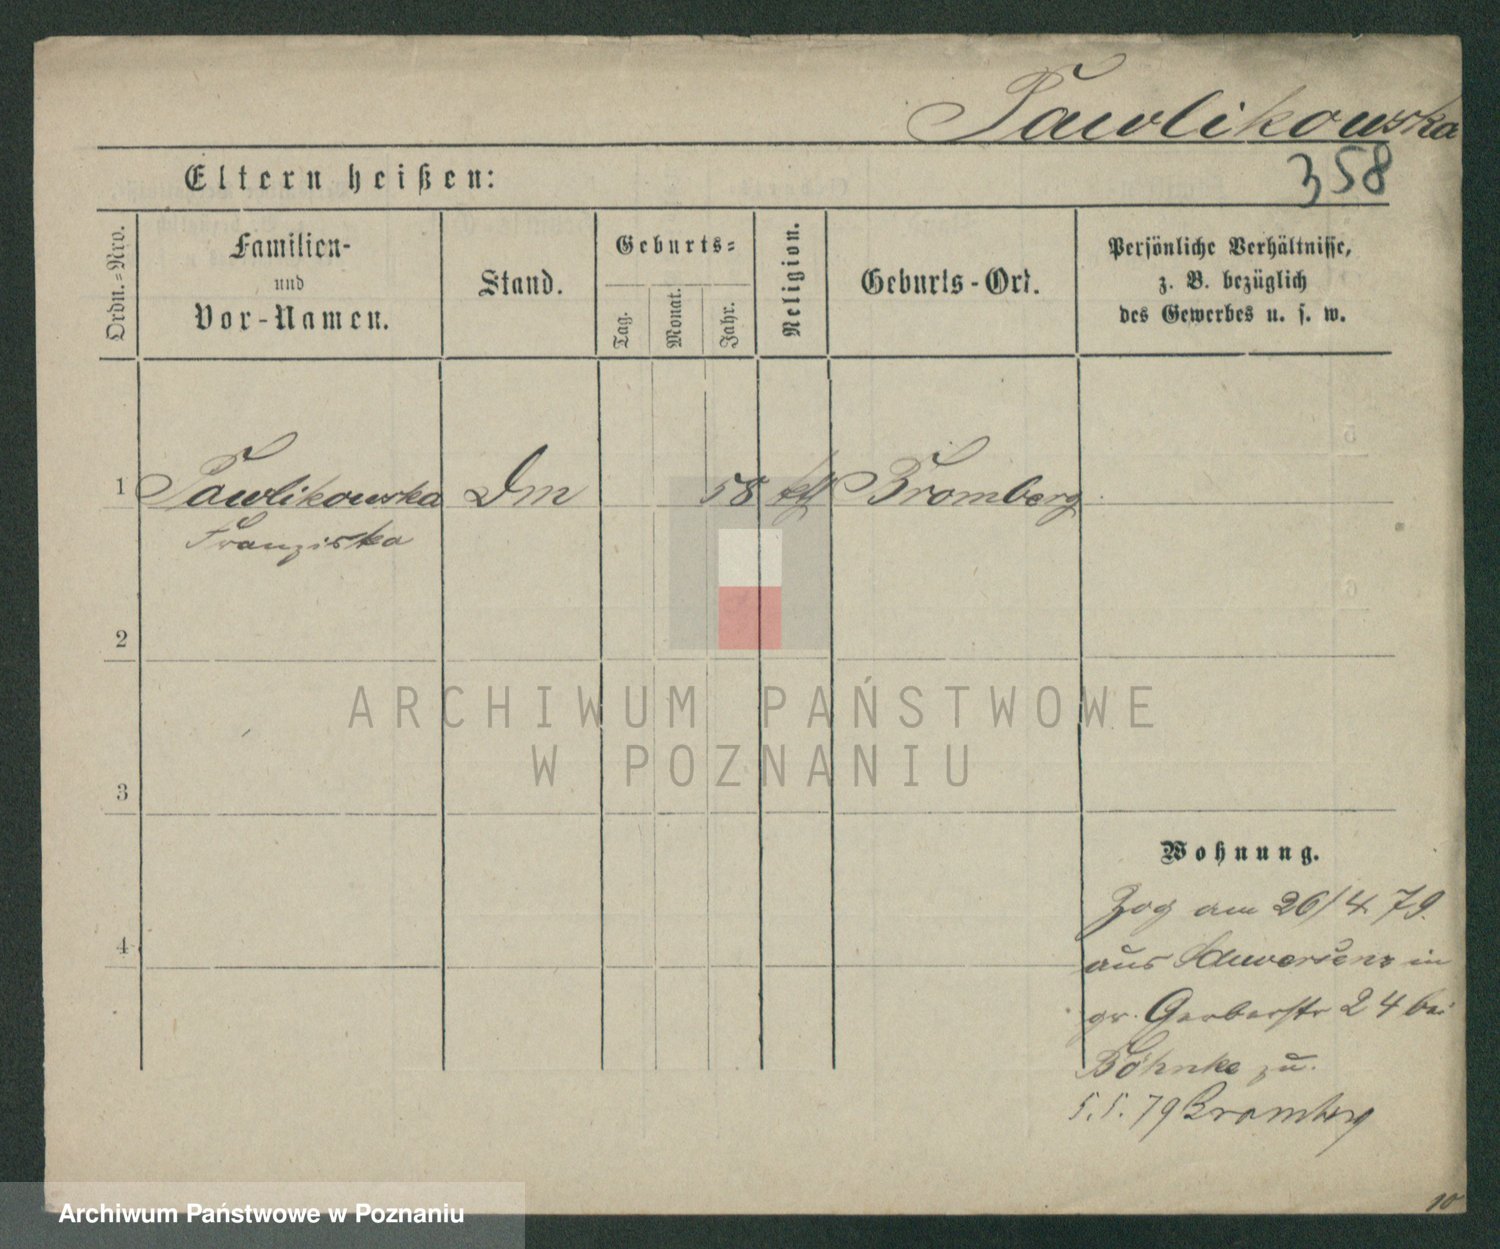 Pawlikowska
358
Eltern heißen:
Ordn.=Nro.
Familien-
und
Vor-Namen.
Stand.
Geburts=
Tag.
Monat.
Jahr.
Religion.
Geburts-Ort.
Persönliche Verhältnisse,
z. B. bezüglich
des Gewerbes u. s. w.
1 Pawlikowska Dm 58 kth Bromberg
Franziska
2
3
4
ARCHIWUM PAŃSTWOWE
W POZNANIU
Wohnung.
Zog am 26/4 79.
aus Schwersenz in
gr. Gerberstr 24 bei
Böhnke zu.
5.5.79 Bromberg
10
Archiwum Państwowe w Poznaniu